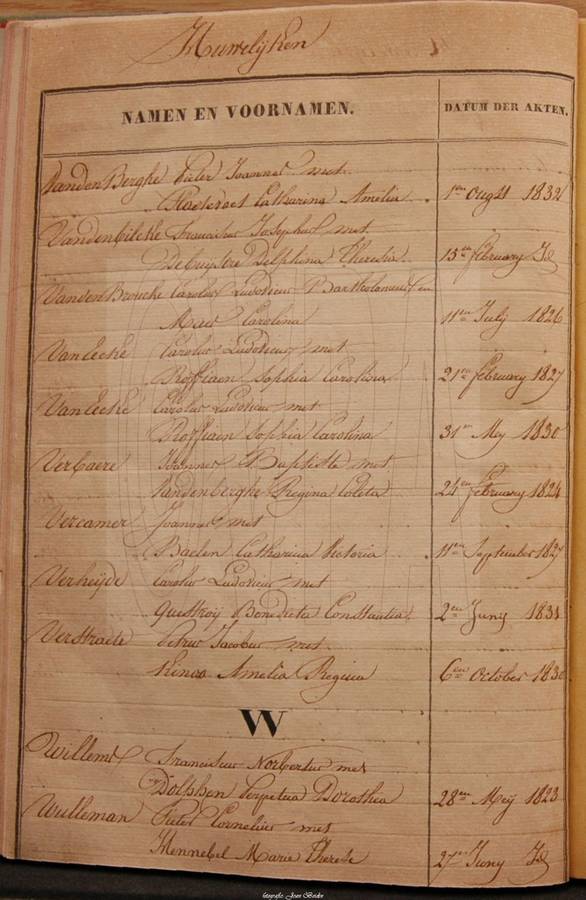 Huwelijken
NAMEN EN VOORNAMEN. DATUM DER AKTEN.
VandenBerghe Pieter Joannes met
Catharina Amelia 1en Ougst 1832
Franciscus Josephus met
Delphina Theresia 15en february Id
VandenBroucke Carolus Ludovicus Bartholomeus en
Maes Carolina 11en July 1826
VanEecke Carolus Ludovicus met
Roffiaen Sophia Carolina 21en february 1827
VanEecke Carolus Ludovicus met
Roffiaen Sophia Carolina 31en Mey 1830
Verbaere Joannes Baptiste met
Vandenberghe Regina Coleta 24en february 1824
Vercamer Joannes met
Baelen Catharina Victoria 11en September 1827
Verheijde Carolus Ludovicus met
Questroij Benedicta Constantia 2en Junij 1831
Verstraete Petrus Jacobus met
Amelia Regina 6en October 1830
W
Willems Franciscus Norbertus met
Dolphen Perpetua Dorothea 28en Meij 1823
Wulleman Pieter Cornelius met
Hennebel Marie Therese 27en Juny Id